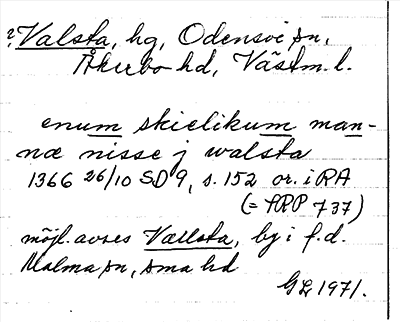 ? Valsta, hg, Odensvi sn,
Åkerbo hd, Västm. l.
enum skielikum man-
næ nisse j walsta
1366 26/10 SD 9, s. 152 or. i RA
(= RPP 737)
möjl. avses Vallsta, by i f.d.
Malma sn, sma hd
GL 1971.